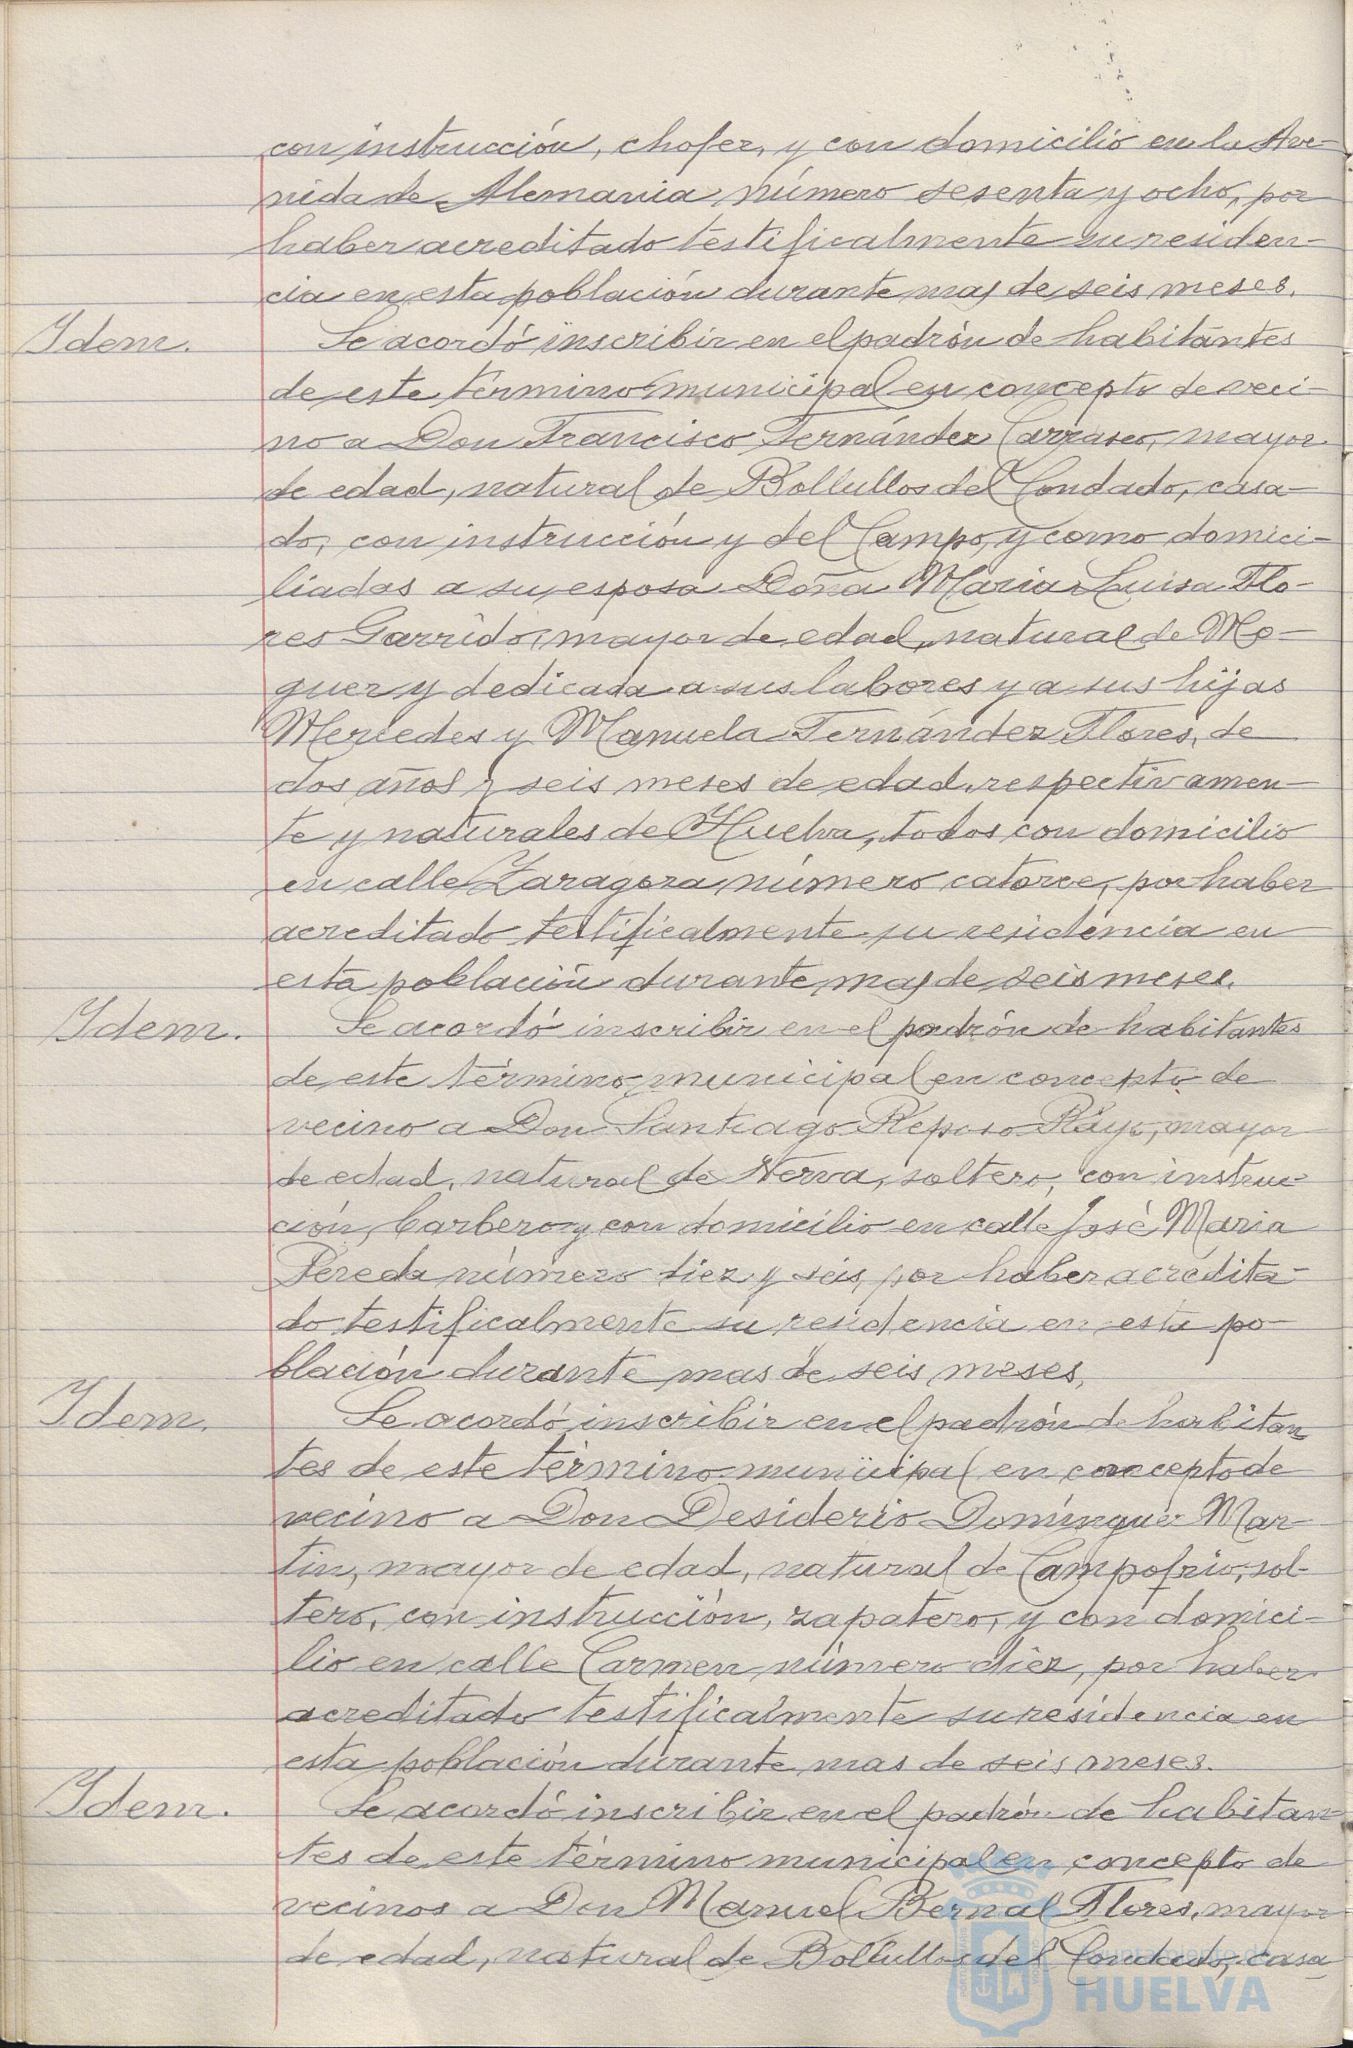 con instrucción, chofer, y con domicilio en la Ave-
nida de Alemania número sesenta y ocho, por
haber acreditado testificalmente su residen-
cia en esta población durante mas de seis meses.
Idem. Se acordó inscribir en el padrón de habitantes
de este término municipal en concepto de veci-
no a Don Francisco Fernández Carrasco, mayor
de edad, natural de Bollullos del Condado, casa-
do, con instrucción y del Campo, y como domici-
liadas a su esposa Doña Maria Luisa Flo-
res Garrido, mayor de edad, natural de Mo-
guer y dedicada a sus labores y a sus hijas
Mercedes y Manuela Fernández Flores, de
dos años y seis meses de edad, respectivamen-
te y naturales de Huelva, todos con domicilio
en calle Zaragoza número catorce, por haber
acreditado testificalmente su residencia en
esta población durante mas de seis meses.
Idem. Se acordó inscribir en el padrón de habitantes
de este término municipal en concepto de
vecino a Don Santiago Reposo Rayo, mayor
de edad, natural de Nerva, soltero, con instruc-
ción, barbero y con domicilio en calle José Maria
Pereda número diez y seis, por haber acredita-
do testificalmente su residencia en esta po-
blación durante mas de seis meses.
Idem. Se acordó inscribir en el padrón de habitan
tes de este término municipal en concepto de
vecino a Don Desiderio Domínguez Mar-
tin, mayor de edad, natural de Campofrio, sol-
tero, con instrucción, zapatero, y con domici-
lio en calle Carmen número diez, por haber
acreditado testificalmente su residencia en
esta población durante mas de seis meses.
Idem. Se acordó inscribir en el padrón de habitan-
tes de este término municipal en concepto de
vecinos a Don Manuel Bernal Flores, mayor
de edad, natural de Bollullos del Condado, casa-
Ayuntamiento de
HUELVA